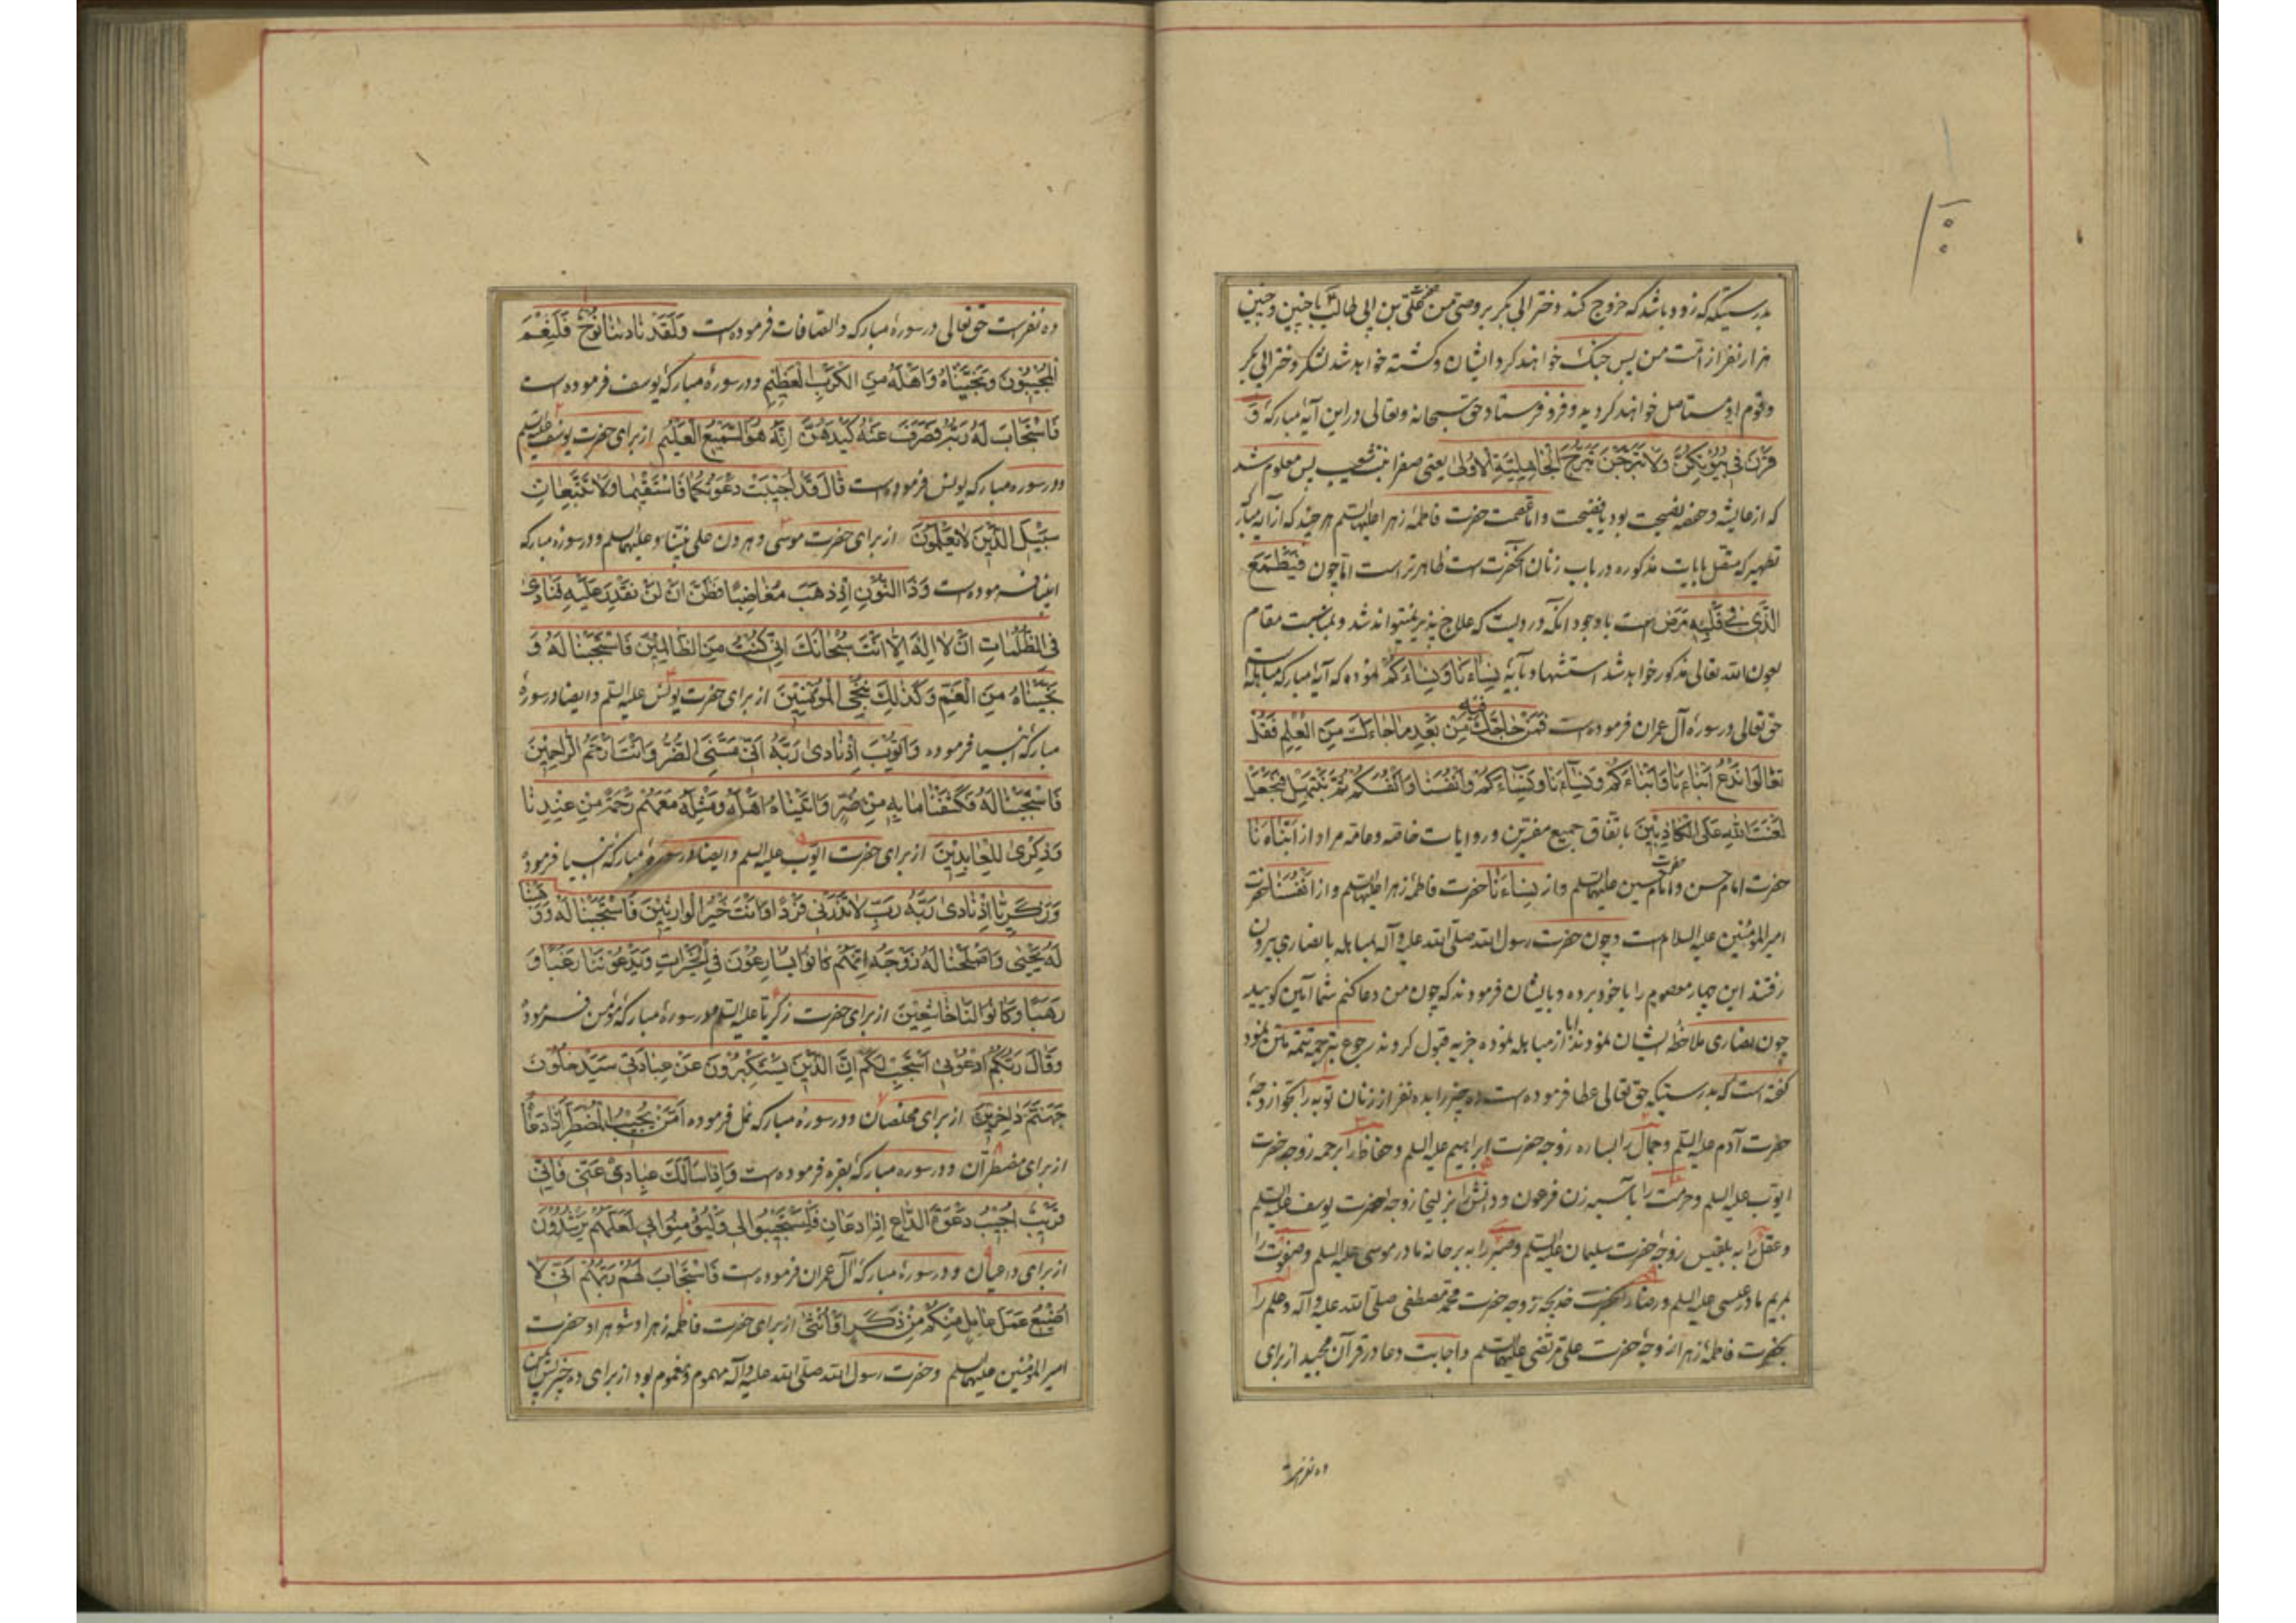 بدرستیکه زود باشد که خروج کند دختر ابی بکر بر وصی من علی بن ابی طالب با چنین و چنین
هزار نفر از امت من پس جنک خواهند کرد ایشان و کشته خواهد شد لشکر دختر ابی بکر
و قوم او مستاصل خواهند کردید و فرو فرستاد حق سبحانه و تعالی در این آیهٔ مبارکه وَ
قَرْنَ فِي بُيُوتِكُنَّ وَلَا تَبَرَّجْنَ تَبَرُّجَ الْجَاهِلِيَّةِ الْأُولَىٰ یعنی صفرا بنت شعیب پس معلوم شد
که از عایشه و حفصه نصیحت بود یا فضیحت و اما عصمت حضرت فاطمهٔ زهرا علیهاالسلم هر چند که از آیه مبارکه
تطهیر که متصل بایات مذکوره در باب زنان آنحضرتست ظاهرتر است اما چون فَيَطْمَعَ
الَّذِي فِي قَلْبِهِ مَرَضٌ است با وجود آنکه دردیست که علاج پذیر نمیتواند شد و بمناسبت مقام
بعون الله تعالی مذکور خواهد شد استشهاد بآیهٔ نِسَاءَنَا وَنِسَاءَكُمْ نموده که آیهٔ مبارکه مباهله است
حق تعالی در سورهٔ آل عمران فرموده است فَمَنْ حَاجَّكَ فِيهِ مِنْ بَعْدِ مَا جَاءَكَ مِنَ الْعِلْمِ فَقُلْ
تَعَالَوْا نَدْعُ أَبْنَاءَنَا وَأَبْنَاءَكُمْ وَنِسَاءَنَا وَنِسَاءَكُمْ وَأَنْفُسَنَا وَأَنْفُسَكُمْ ثُمَّ نَبْتَهِلْ فَنَجْعَلْ
لَعْنَتَ اللَّهِ عَلَى الْكَاذِبِينَ باتفاق جمیع مفسرین و روایات خاصه و عامه مراد از أَبْنَاءَنَا
حضرت امام حسن و حضرت امام حسین علیهماالسلم و از نِسَاءَنَا حضرت فاطمهٔ زهرا علیهاالسلم و از أَنْفُسَنَا حضرت
امیرالمؤمنین علیه السلام است و چون حضرت رسول الله صلی الله علیه و آله بمباهله با نصاری بیرون
رفتند این چهار معصوم را با خود برده و بایشان فرمودند که چون من دعا کنم شما آمین کویید
چون نصاری ملاحظهٔ ایشان نمودند ابا از مباهله نموده جزیه قبول کردند رجوع بترجمه تتمه متن نمود
کفته است که بدرستیکه حق تعالی عطا فرموده است ده چیز را بده نفر از زنان توبه را بحوّا زوجهٔ
حضرت آدم علیه السلم و جمال را بساره زوجه حضرت ابراهیم علیه السلم و حفاظ را برحمه زوجه حضرت
ایوب علیه السلم و حرمت را بآسیه زن فرعون و دانش را بزلیخا زوجهٔ حضرت یوسف علیه السلم
و عقل را به بلقیس زوجهٔ حضرت سلیمان علیه السلم و صبر را به برحانه مادر موسی علیه السلم و صفوت را
بمریم مادر عیسی علیه السلم و رضا را بحضرت خدیجه زوجه حضرت محمد مصطفی صلی الله علیه و آله و علم را
بحضرت فاطمهٔ زهرا زوجهٔ حضرت علی مرتضی علیهماالسلم و اجابت دعا در قرآن مجید از برای
ده نفر است
ده نفرست حق تعالی در سورهٔ مبارکه والصافات فرموده است وَلَقَدْ نَادَانَا نُوحٌ فَلَنِعْمَ
الْمُجِيبُونَ وَنَجَّيْنَاهُ وَأَهْلَهُ مِنَ الْكَرْبِ الْعَظِيمِ و در سورهٔ مبارکهٔ یوسف فرموده است
فَاسْتَجَابَ لَهُ رَبُّهُ فَصَرَفَ عَنْهُ كَيْدَهُنَّ إِنَّهُ هُوَ السَّمِيعُ الْعَلِيمُ از برای حضرت یوسف علیه السلم
و در سوره مبارکه یونس فرموده است قَالَ قَدْ أُجِيبَتْ دَعْوَتُكُمَا فَاسْتَقِيمَا وَلَا تَتَّبِعَانِّ
سَبِيلَ الَّذِينَ لَا يَعْلَمُونَ از برای حضرت موسی و هرون علی نبینا و علیهماالسلم و در سورهٔ مبارکه
انبیا فرموده است وَذَا النُّونِ إِذْ ذَهَبَ مُغَاضِبًا فَظَنَّ أَنْ لَنْ نَقْدِرَ عَلَيْهِ فَنَادَىٰ
فِي الظُّلُمَاتِ أَنْ لَا إِلَٰهَ إِلَّا أَنْتَ سُبْحَانَكَ إِنِّي كُنْتُ مِنَ الظَّالِمِينَ فَاسْتَجَبْنَا لَهُ وَ
نَجَّيْنَاهُ مِنَ الْغَمِّ وَكَذَٰلِكَ نُنْجِي الْمُؤْمِنِينَ از برای حضرت یونس علیه السلم و ایضا در سورهٔ
مبارکهٔ انبیا فرموده وَأَيُّوبَ إِذْ نَادَىٰ رَبَّهُ أَنِّي مَسَّنِيَ الضُّرُّ وَأَنْتَ أَرْحَمُ الرَّاحِمِينَ
فَاسْتَجَبْنَا لَهُ فَكَشَفْنَا مَا بِهِ مِنْ ضُرٍّ وَآتَيْنَاهُ أَهْلَهُ وَمِثْلَهُمْ مَعَهُمْ رَحْمَةً مِنْ عِنْدِنَا
وَذِكْرَىٰ لِلْعَابِدِينَ از برای حضرت ایوب علیه السلم و ایضا در سورهٔ مبارکهٔ انبیا فرموده
وَزَكَرِيَّا إِذْ نَادَىٰ رَبَّهُ رَبِّ لَا تَذَرْنِي فَرْدًا وَأَنْتَ خَيْرُ الْوَارِثِينَ فَاسْتَجَبْنَا لَهُ وَوَهَبْنَا
لَهُ يَحْيَىٰ وَأَصْلَحْنَا لَهُ زَوْجَهُ إِنَّهُمْ كَانُوا يُسَارِعُونَ فِي الْخَيْرَاتِ وَيَدْعُونَنَا رَغَبًا وَ
رَهَبًا وَكَانُوا لَنَا خَاشِعِينَ از برای حضرت زکریا علیه السلم و در سورهٔ مبارکهٔ مؤمن فرموده
وَقَالَ رَبُّكُمُ ادْعُونِي أَسْتَجِبْ لَكُمْ إِنَّ الَّذِينَ يَسْتَكْبِرُونَ عَنْ عِبَادَتِي سَيَدْخُلُونَ
جَهَنَّمَ دَاخِرِينَ از برای مخلصان و در سورهٔ مبارکه نمل فرموده أَمَّنْ يُجِيبُ الْمُضْطَرَّ إِذَا دَعَاهُ
از برای مضطران و در سوره مبارکهٔ بقره فرموده است وَإِذَا سَأَلَكَ عِبَادِي عَنِّي فَإِنِّي
قَرِيبٌ أُجِيبُ دَعْوَةَ الدَّاعِ إِذَا دَعَانِ فَلْيَسْتَجِيبُوا لِي وَلْيُؤْمِنُوا بِي لَعَلَّهُمْ يَرْشُدُونَ
از برای داعیان و در سورهٔ مبارکهٔ آل عمران فرموده است فَاسْتَجَابَ لَهُمْ رَبُّهُمْ أَنِّي لَا
أُضِيعُ عَمَلَ عَامِلٍ مِنْكُمْ مِنْ ذَكَرٍ أَوْ أُنْثَىٰ از برای حضرت فاطمه زهرا و شوهر او حضرت
امیرالمؤمنین علیهماالسلم و حضرت رسول الله صلی الله علیه و آله مهموم و مغموم بود از برای ده چیز پس ایمن